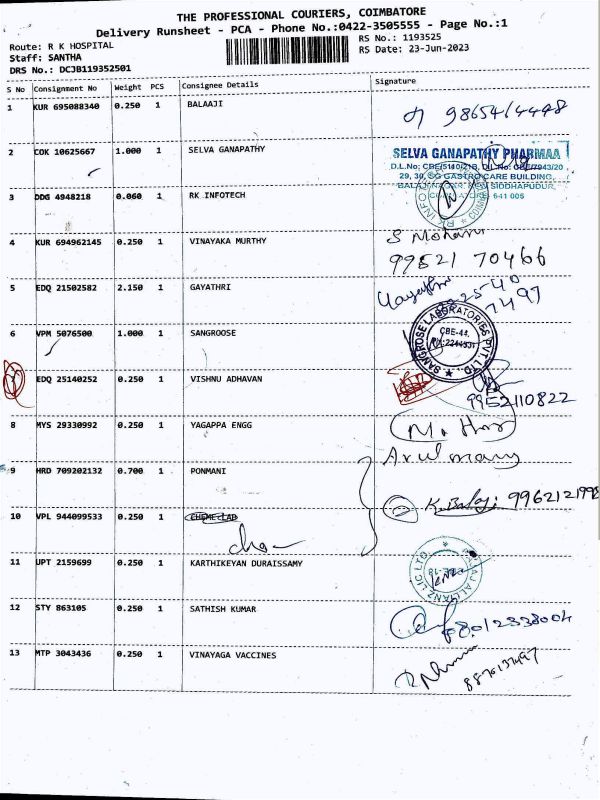 THE PROFESSIONAL COURIERS, COIMBATORE
Delivery Runsheet - PCA - Phone No.:0422-3505555 - Page No.:1
Route: R K HOSPITAL
Staff: SANTHA
DRS No.: DCJB119352501
RS No.: 1193525
RS Date: 23-Jun-2023
S No Consignment No Weight PCS Consignee Details Signature
1 KUR 695088340 0.250 1 BALAAJI
2 COK 10625667 1.000 1 SELVA GANAPATHY
SELVA GANAPATHY PHARMAA
29, 30, GASTRO CARE BUILDING,
SIDDHAPUDUR,
641 005
3 DDG 4948218 0.060 1 RK INFOTECH
RK INFO
4 KUR 694962145 0.250 1 VINAYAKA MURTHY
S Mohan
99521 70466
5 EDQ 21502582 2.150 1 GAYATHRI
Gayathri
7497
6 VPM 5076500 1.000 1 SANGROOSE
SANGROSE LABORATORIES PVT. LTD.
CBE-44.
7 EDQ 25140252 0.250 1 VISHNU ADHAVAN
9952110822
8 MYS 29330992 0.250 1 YAGAPPA ENGG
9 HRD 709202132 0.700 1 PONMANI
Arul mary
10 VPL 944099533 0.250 1
K. Balaji 9962121998
11 UPT 2159699 0.250 1 KARTHIKEYAN DURAISSAMY
12 STY 863105 0.250 1 SATHISH KUMAR
8012338004
13 MTP 3043436 0.250 1 VINAYAGA VACCINES